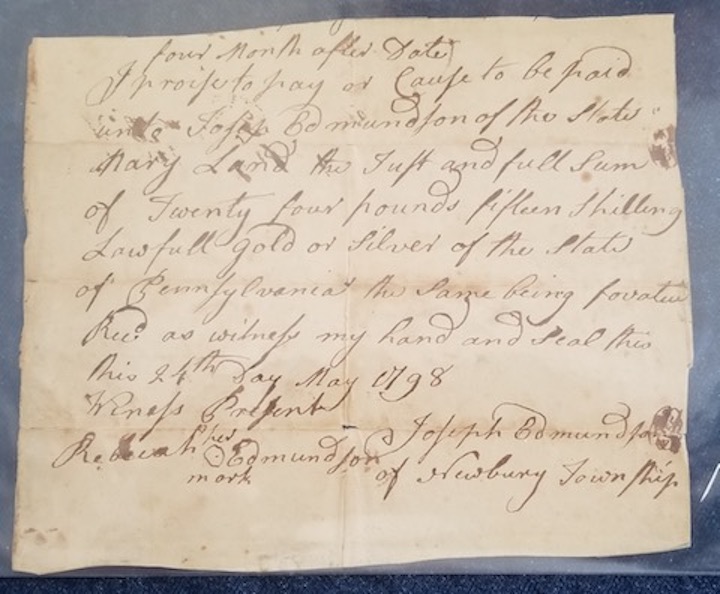 four Month after Date
I proise to pay or Cause to be paid
unto Joseph Edmundson of the State
Mary Land the Just and full Sum
of Twenty four pounds fifteen Shilling
Lawfull gold or Silver of the State
of Pennsylvania the same being for
Recd as witness my hand and seal this
this 24th Day May 1798
Witness Present
Joseph Edmundson
Rebecah her Edmundson
mark
of Newbury Township